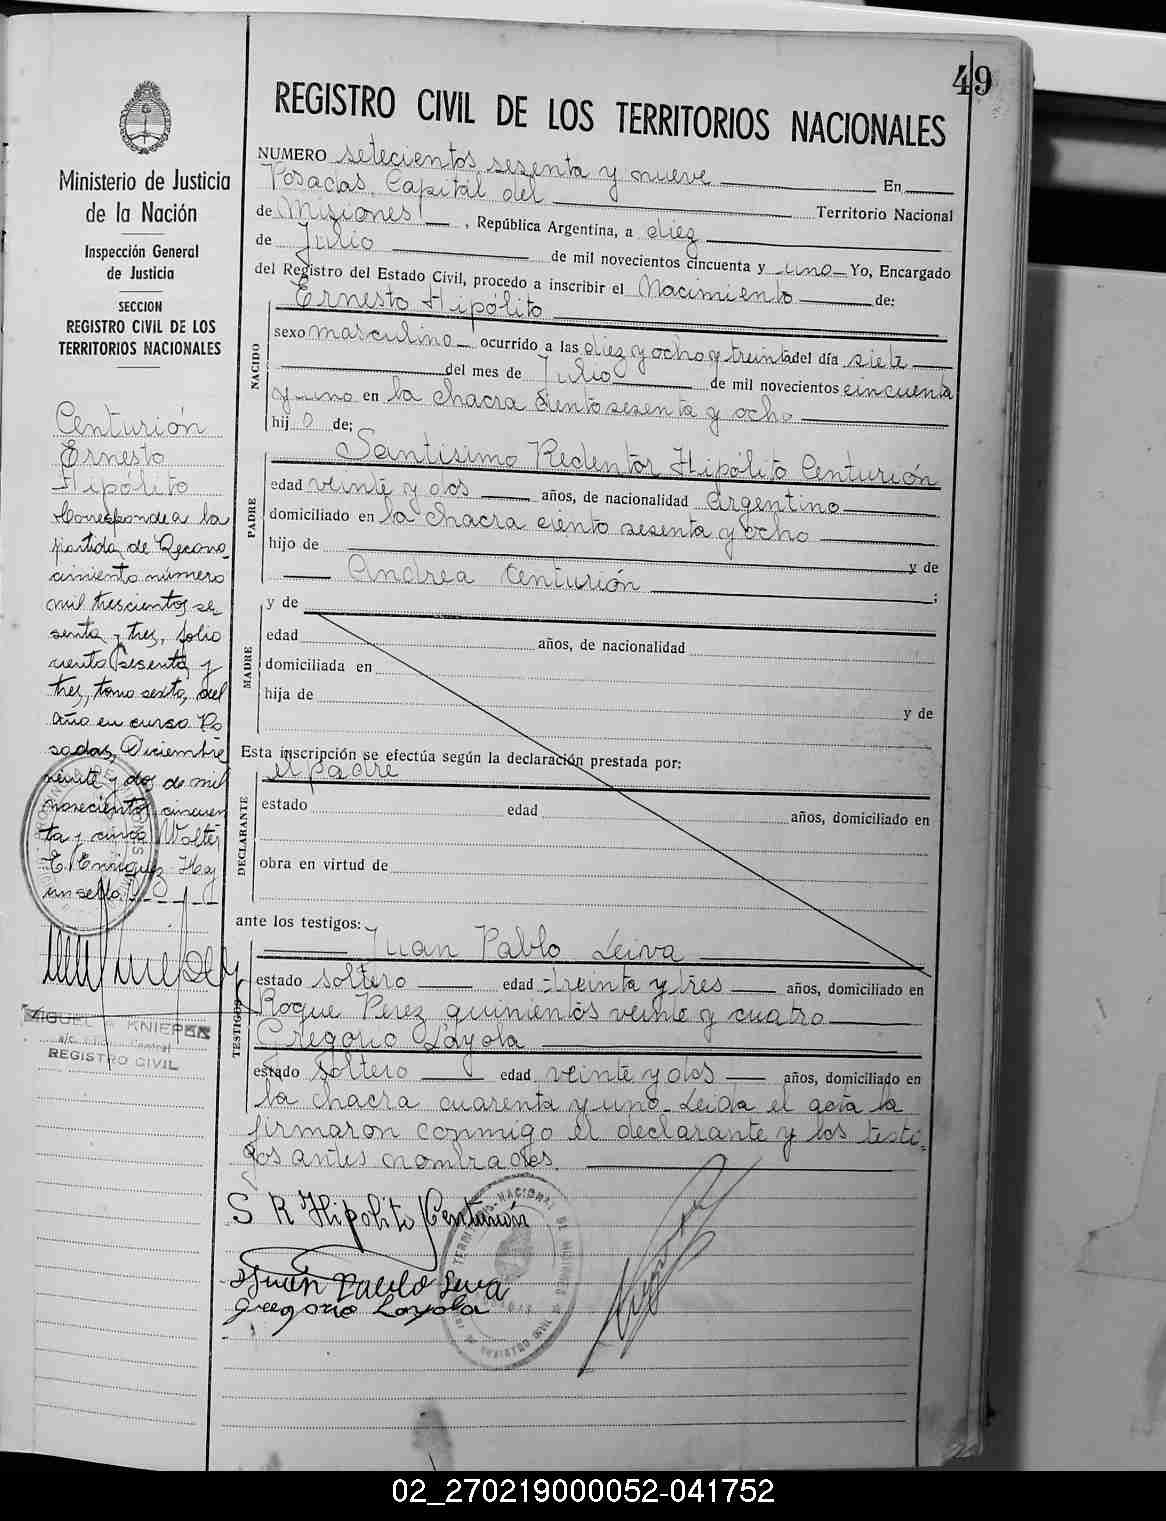 49
REGISTRO CIVIL DE LOS TERRITORIOS NACIONALES
Ministerio de Justicia
de la Nación
Inspección General
de Justicia
SECCION
REGISTRO CIVIL DE LOS
TERRITORIOS NACIONALES
Centurión
Ernesto
Hipólito
Corresponde a la
partida de Recono-
cimiento número
mil trescientos se
senta y tres, folio
ciento sesenta y
tres, tomo sexto, del
año en curso Po
sadas, Diciembre
veinte y dos de mil
novecientos cincuen
ta y cinco Walter
E. Enriquez Hay
un sello
MIGUEL KNIEPER
REGISTRO CIVIL
NUMERO setecientos sesenta y nueve En
Posadas, Capital del Territorio Nacional
de Misiones, República Argentina, a diez
de Julio de mil novecientos cincuenta y uno Yo, Encargado
del Registro del Estado Civil, procedo a inscribir el Nacimiento de:
Ernesto Hipólito
NACIDO
sexo masculino ocurrido a las diez y ocho y treinta del día siete
del mes de Julio de mil novecientos cincuenta
y uno en la chacra ciento sesenta y ocho
hij o de;
PADRE
Santisimo Redentor Hipólito Centurión
edad veinte y dos años, de nacionalidad argentino
domiciliado en la chacra ciento sesenta y ocho
hijo de y de
Andrea Centurión ;
MADRE
y de
edad años, de nacionalidad
domiciliada en
hija de y de
Esta inscripción se efectúa según la declaración prestada por:
el padre
DECLARANTE
estado edad años, domiciliado en
obra en virtud de
ante los testigos:
TESTIGOS
Juan Pablo Leiva
estado soltero edad treinta y tres años, domiciliado en
Roque Perez quinientos veinte y cuatro
Gregorio Loyola
estado soltero edad veinte y dos años, domiciliado en
la chacra cuarenta y uno. Leida el acta la
firmaron conmigo el declarante y los testi-
gos antes nombrados.
S R Hipolito Centurión
Juan Pablo Leiva
Gregorio Loyola
02_270219000052-041752